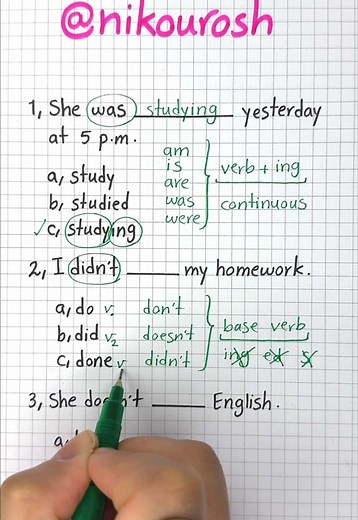 @nikourosh
1, She was studying yesterday
at 5 p.m.
am
is
are
was
were
verb + ing
continuous
a, study
b, studied
✓c, studying
2, I didn't ______ my homework.
a, do v₁ don't
b, did v₂ doesn't
c, done v didn't
base verb
ing ed s
3, She doesn't ______ English.
a,